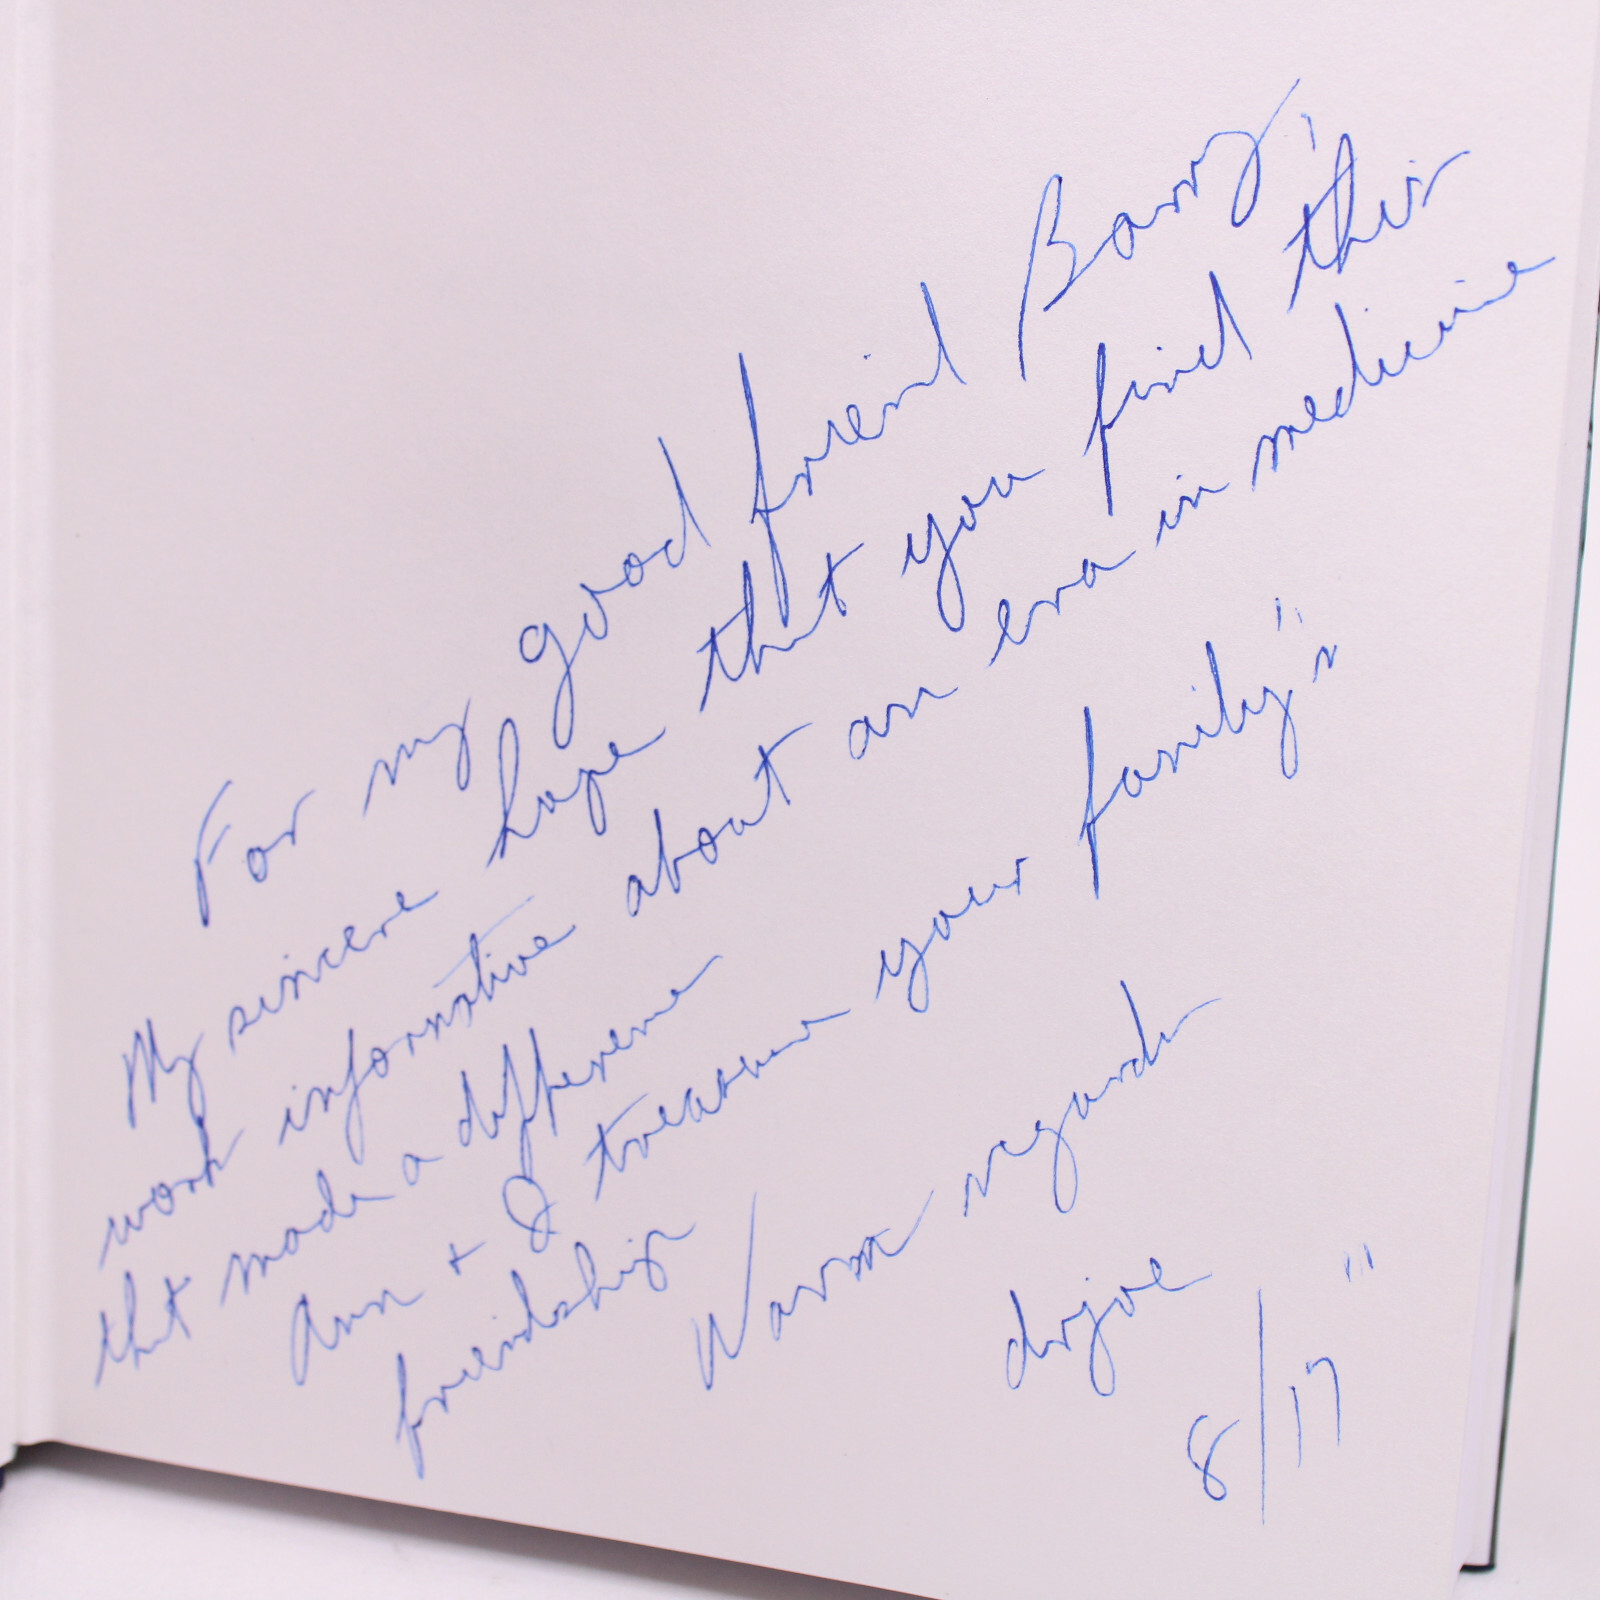 For my good friend Barry,
My sincere hope that you find this
work informative about an era in medicine
that made a difference
Ann + I treasure your family's
friendship
Warm regards
drjoe
8/17